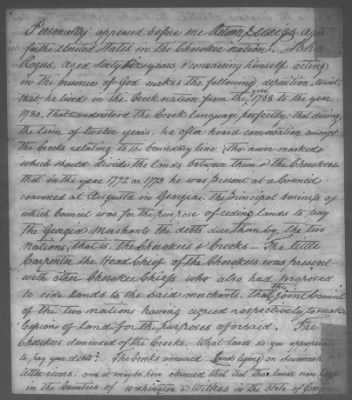 Personally appeared before me Return J. Meigs agent
for the United States in the Cherokee nation, John
Rogers, aged Sixty five years, & considering himself acting
in the presence of God makes the following deposition, to wit,
that he lived in the Creek nation from the year 1768 to the year
1780, that he understood the Creek language perfectly; that during
the term of twelve years, he often heard conversation amongst
the Creeks relating to the boundary line, that was marked
which should divide the lands between them & the Cherokees
that in the year 1772 or 1773 he was present at a Council
convened at Augusta in Georgia. The principal business of
which Council was for the purpose of ceding lands to pay
the Georgia Merchants the debts due them by the two
nations, that is, the Cherokees & Creeks — The little
Carpenter the Head Chief of the Cherokees was present
with other Cherokee Chiefs who also had proposed
to cede lands to the said merchants, that the joint Council
of the two nations having agreed respectively to make
Cessions of land for the purposes aforesaid. The
Cherokees demanded of the Creeks. What lands is you
to pay your debts? The Creeks answered. Lands lying on Savannah &
other rivers. and it may be here observed that these lands now lay
in the Counties of Washington & Wilkes in the State of Georgia